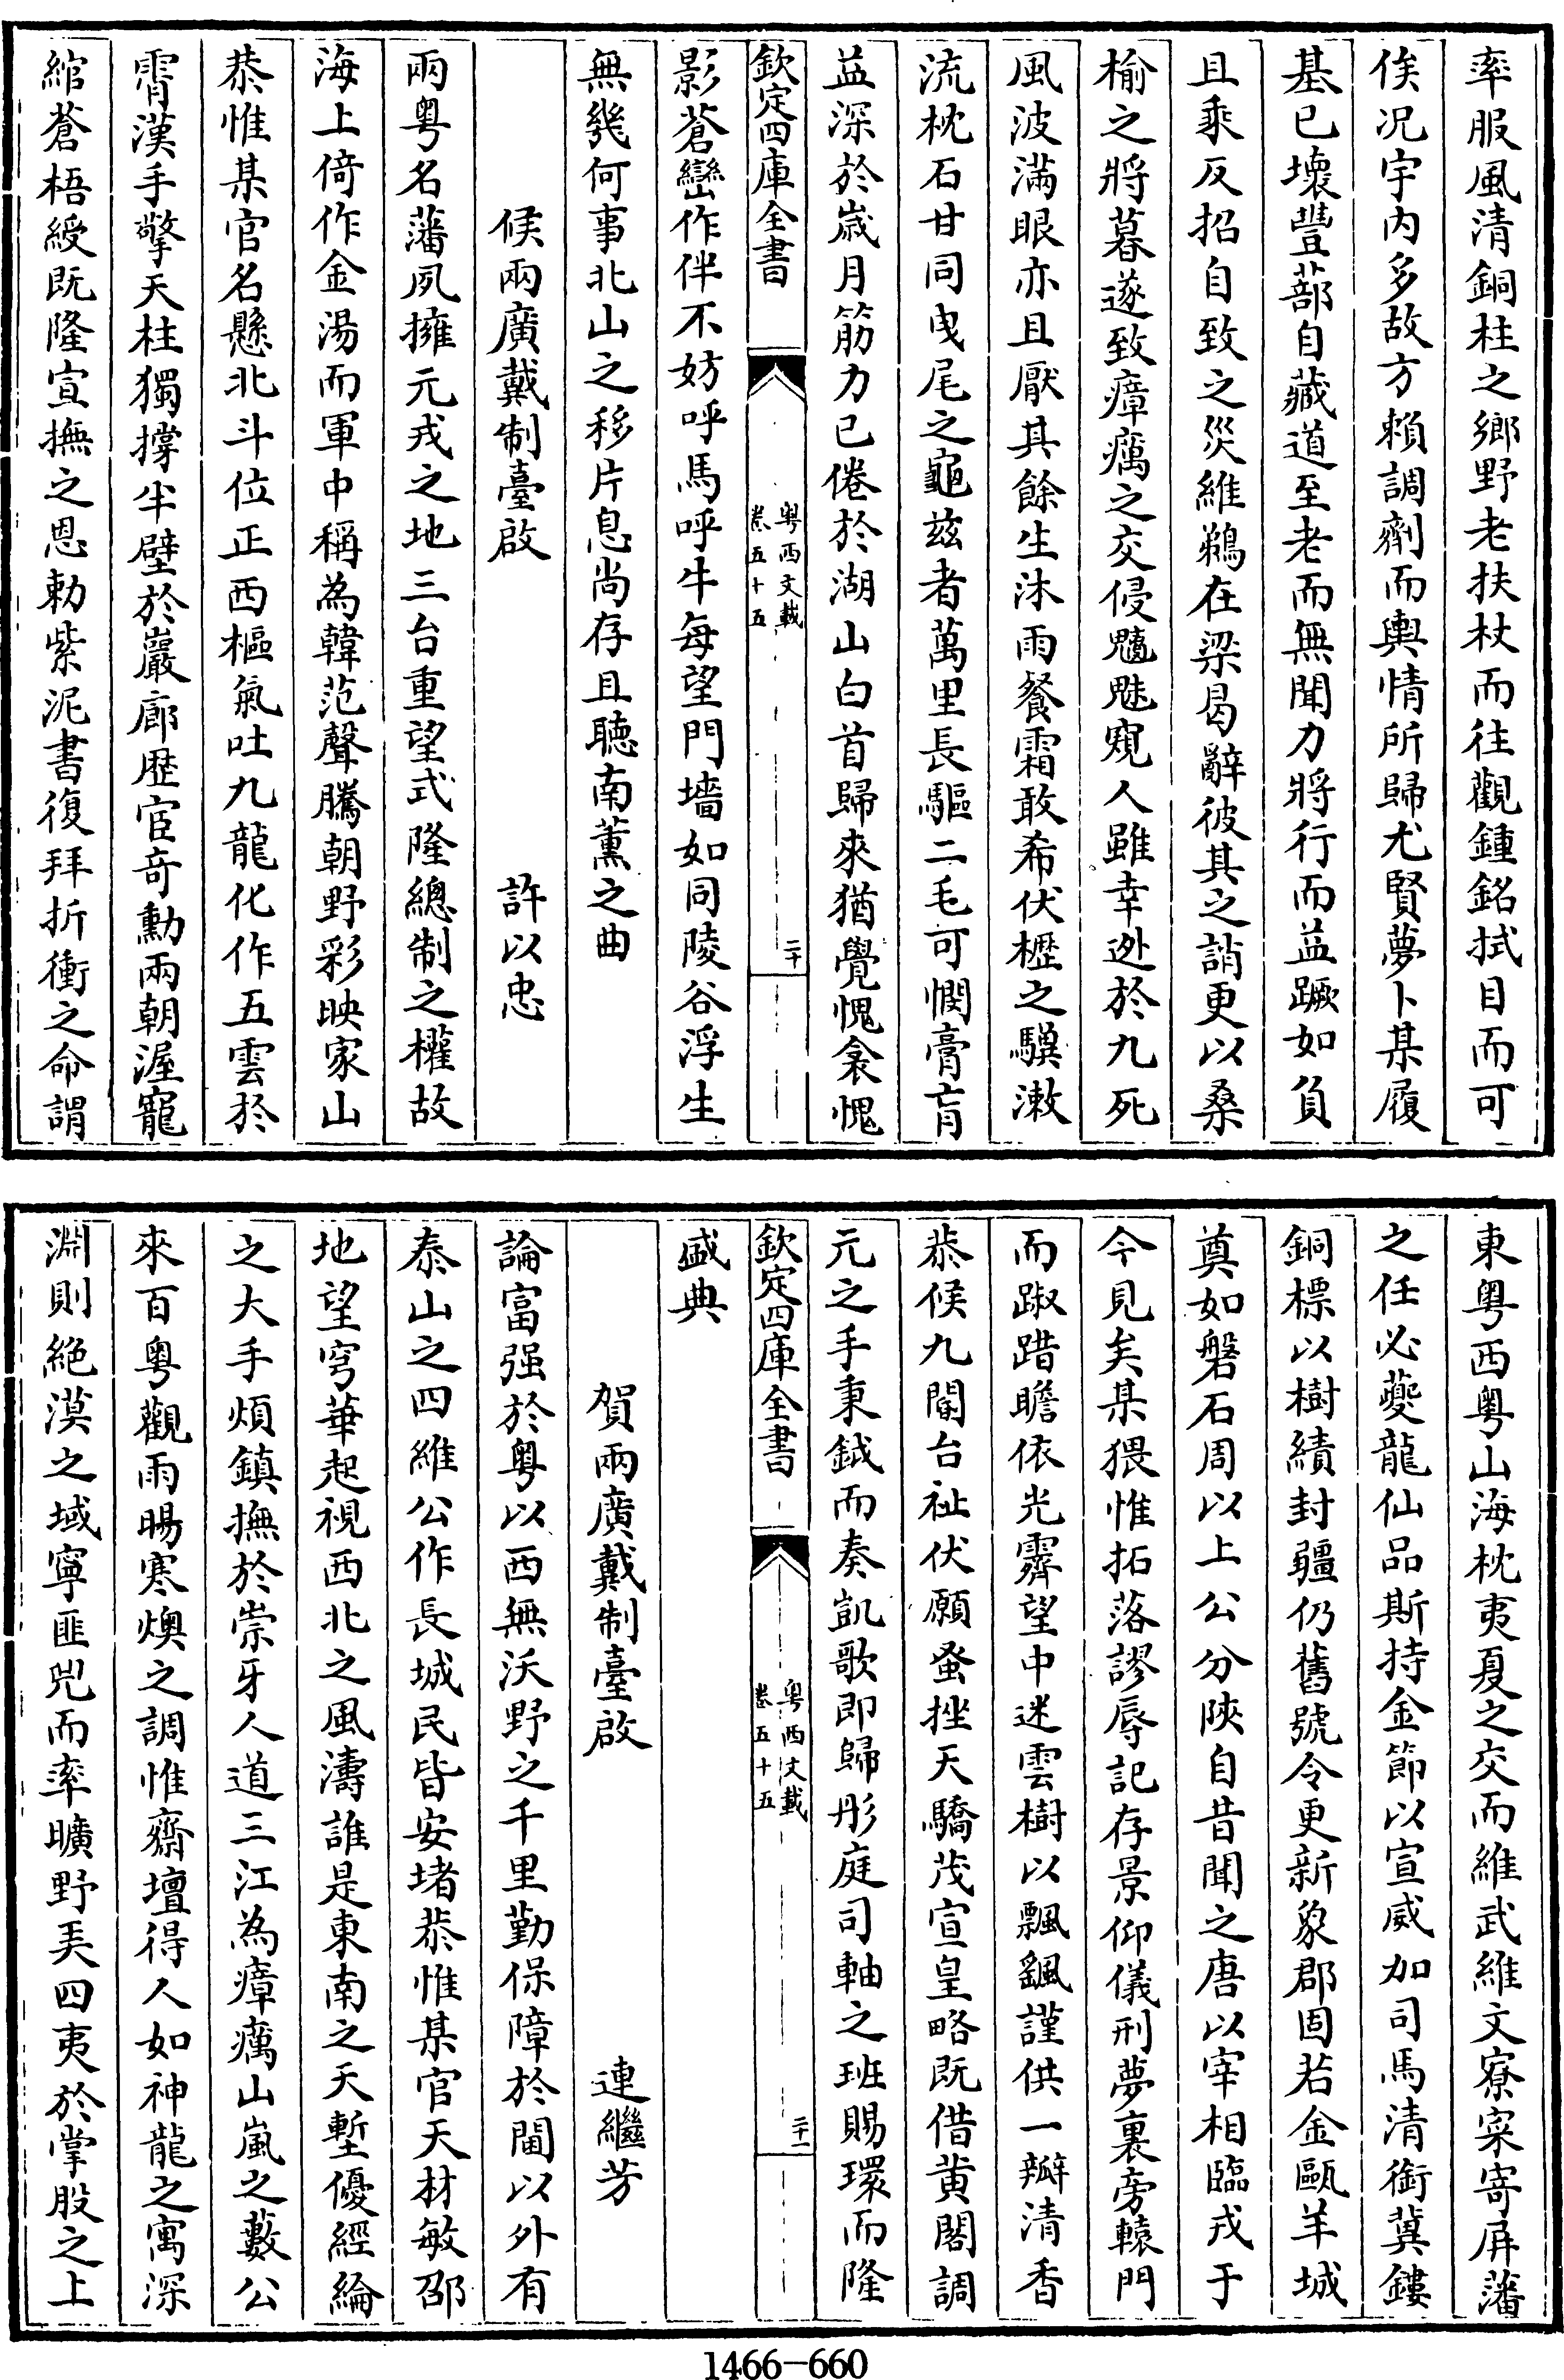 率服風清銅柱之鄉野老扶杖而往觀鍾銘拭目而可
俟况宇内多故方賴調劑而輿情所歸尤賢夢卜某履
基已壞豐蔀自藏道至老而無聞力將行而益蹶如負
且乘反招自致之災維鵜在梁曷辭彼其之誚更以桑
榆之將暮遂致瘴癘之交侵魑魅窺人雖幸逃於九死
風波滿眼亦且厭其餘生沐雨餐霜敢希伏櫪之驥漱
流枕石甘同曳尾之龜兹者萬里長驅二毛可憫膏肓
益深於嵗月筋力已倦於湖山白首歸來猶覺愧衾愧
欽定四庫全書
粤西文載
卷五十五
二十
影蒼巒作伴不妨呼馬呼牛每望門墻如同陵谷浮生
無幾何事北山之移片息尚存且聽南薰之曲
候兩廣戴制臺啟
許以忠
兩粤名藩夙擁元戎之地三台重望式隆總制之權故
海上倚作金湯而軍中稱為韓范聲騰朝野彩映家山
恭惟某官名懸北斗位正西樞氣吐九龍化作五雲於
霄漢手擎天柱獨撐半壁於巖廊歴宦竒勳兩朝渥寵
綰蒼梧綬既隆宣撫之恩勅紫泥書復拜折衝之命謂
東粤西粤山海枕夷夏之交而維武維文寮寀寄屏藩
之任必夔龍仙品斯持金節以宣威加司馬清銜冀鏤
銅標以樹績封疆仍舊號令更新象郡固若金甌羊城
奠如磐石周以上公分陜自昔聞之唐以宰相臨戎于
今見矣某猥惟拓落謬辱記存景仰儀刑夢裏旁轅門
而踧踖瞻依光霽望中迷雲樹以飄颻謹供一瓣清香
恭候九閽台祉伏願蚤挫天驕茂宣皇略既借黄閣調
元之手秉鉞而奏凱歌即歸彤庭司軸之班賜環而隆
欽定四庫全書
粤西文載
卷五十五
二十一
盛典
賀兩廣戴制臺啟
連繼芳
論富强於粤以西無沃野之千里勤保障於閫以外有
泰山之四維公作長城民皆安堵恭惟某官天材敏邵
地望穹華起視西北之風濤誰是東南之天塹優經綸
之大手煩鎮撫於崇牙人道三江為瘴癘山嵐之藪公
來百粤觀雨暘寒燠之調惟齋壇得人如神龍之寓深
淵則絶漠之域寧匪兕而率曠野美四夷於掌股之上
1466-660